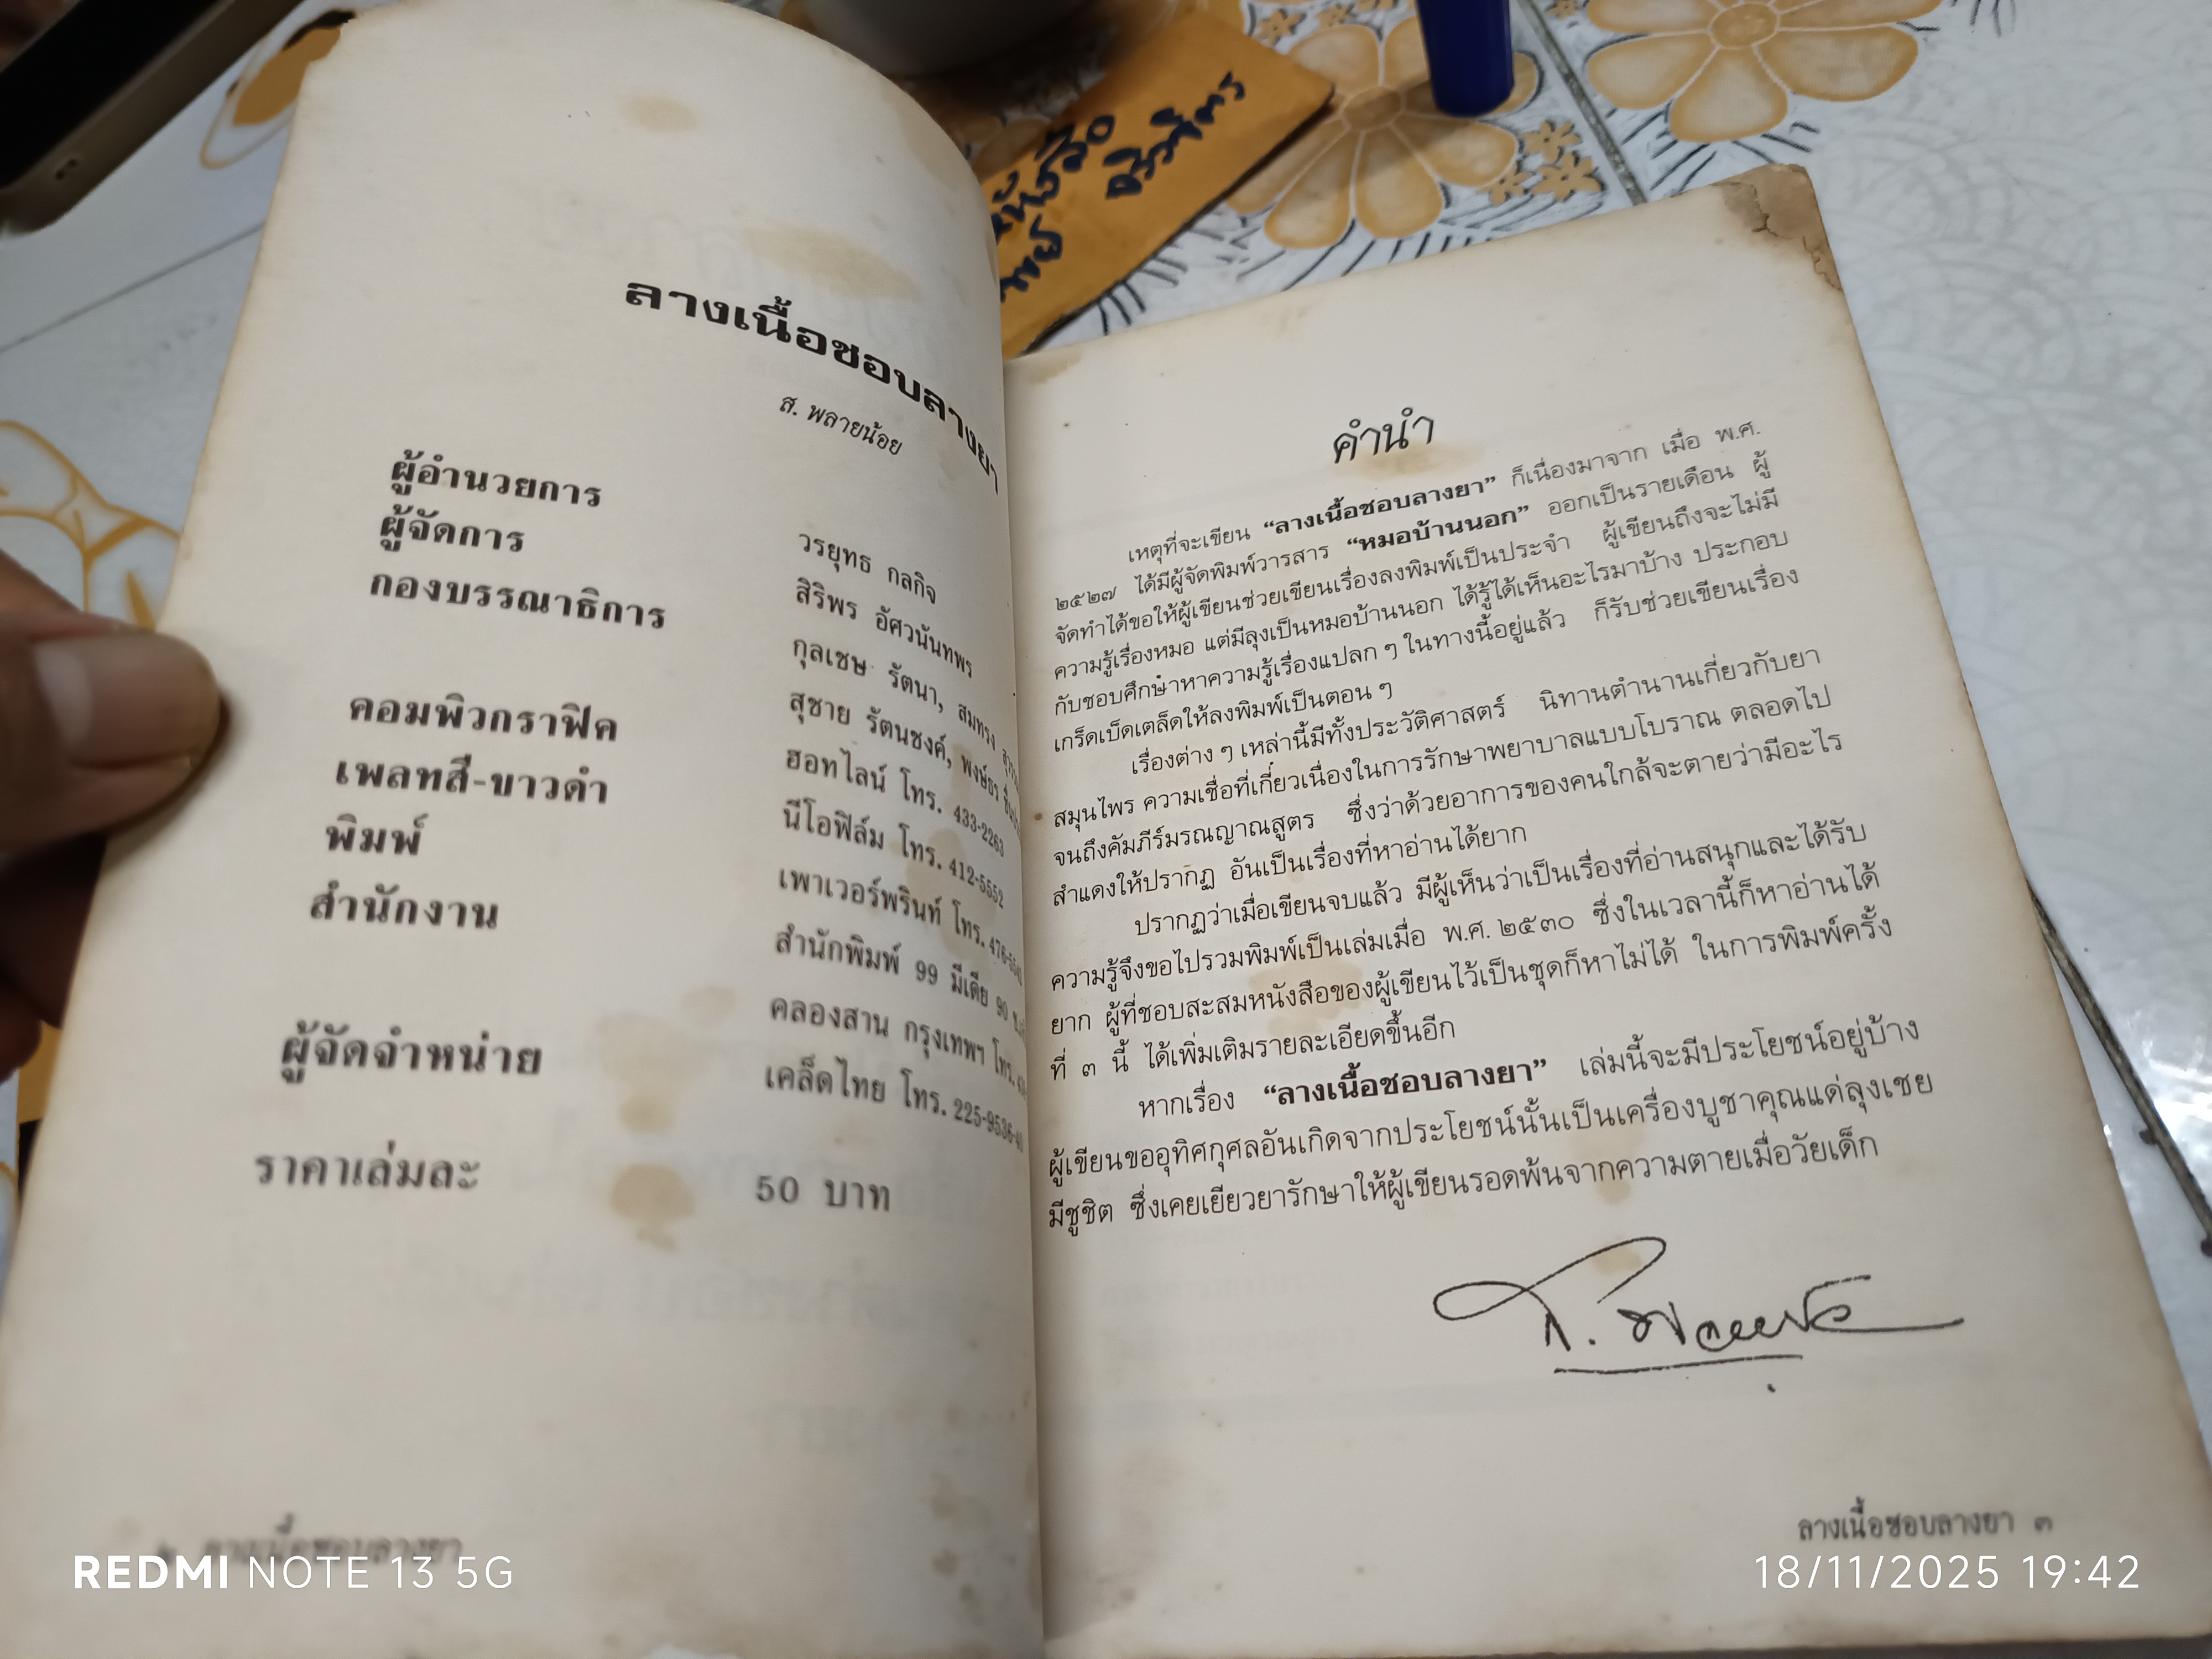 ลางเนื้อชอบลางยา
ส. พลายน้อย
ผู้อำนวยการ วรยุทธ กลกิจ
ผู้จัดการ สิริพร อัศวนันทพร
กองบรรณาธิการ กุลเชษ รัตนา, สมทรง
สุชาย รัตนชงค์, พงษ์ธร
คอมพิวกราฟิค ฮอทไลน์ โทร. 433-2263
เพลทสี-ขาวดำ นีโอฟิล์ม โทร. 412-5552
พิมพ์ เพาเวอร์พรินท์ โทร. 476-
สำนักงาน สำนักพิมพ์ 99 มีเดีย 90
คลองสาน กรุงเทพฯ โทร.
ผู้จัดจำหน่าย เคล็ดไทย โทร. 225-9536-40
ราคาเล่มละ 50 บาท
๒ ลางเนื้อชอบลางยา
คำนำ
เหตุที่จะเขียน “ลางเนื้อชอบลางยา” ก็เนื่องมาจาก เมื่อ พ.ศ.
๒๕๒๗ ได้มีผู้จัดพิมพ์วารสาร “หมอบ้านนอก” ออกเป็นรายเดือน ผู้
จัดทำได้ขอให้ผู้เขียนช่วยเขียนเรื่องลงพิมพ์เป็นประจำ ผู้เขียนถึงจะไม่มี
ความรู้เรื่องหมอ แต่มีลุงเป็นหมอบ้านนอก ได้รู้ได้เห็นอะไรมาบ้าง ประกอบ
กับชอบศึกษาหาความรู้เรื่องแปลก ๆ ในทางนี้อยู่แล้ว ก็รับช่วยเขียนเรื่อง
เกร็ดเบ็ดเตล็ดให้ลงพิมพ์เป็นตอน ๆ
เรื่องต่าง ๆ เหล่านี้มีทั้งประวัติศาสตร์ นิทานตำนานเกี่ยวกับยา
สมุนไพร ความเชื่อที่เกี่ยวเนื่องในการรักษาพยาบาลแบบโบราณ ตลอดไป
จนถึงคัมภีร์มรณญาณสูตร ซึ่งว่าด้วยอาการของคนใกล้จะตายว่ามีอะไร
สำแดงให้ปรากฏ อันเป็นเรื่องที่หาอ่านได้ยาก
ปรากฏว่าเมื่อเขียนจบแล้ว มีผู้เห็นว่าเป็นเรื่องที่อ่านสนุกและได้รับ
ความรู้จึงขอไปรวมพิมพ์เป็นเล่มเมื่อ พ.ศ. ๒๕๓๐ ซึ่งในเวลานี้ก็หาอ่านได้
ยาก ผู้ที่ชอบสะสมหนังสือของผู้เขียนไว้เป็นชุดก็หาไม่ได้ ในการพิมพ์ครั้ง
ที่ ๓ นี้ ได้เพิ่มเติมรายละเอียดขึ้นอีก
หากเรื่อง “ลางเนื้อชอบลางยา” เล่มนี้จะมีประโยชน์อยู่บ้าง
ผู้เขียนขออุทิศกุศลอันเกิดจากประโยชน์นั้นเป็นเครื่องบูชาคุณแด่ลุงเชย
มีชูชิต ซึ่งเคยเยียวยารักษาให้ผู้เขียนรอดพ้นจากความตายเมื่อวัยเด็ก
ส. พลายน้อย
ลางเนื้อชอบลางยา ๓
REDMI NOTE 13 5G
18/11/2025 19:42